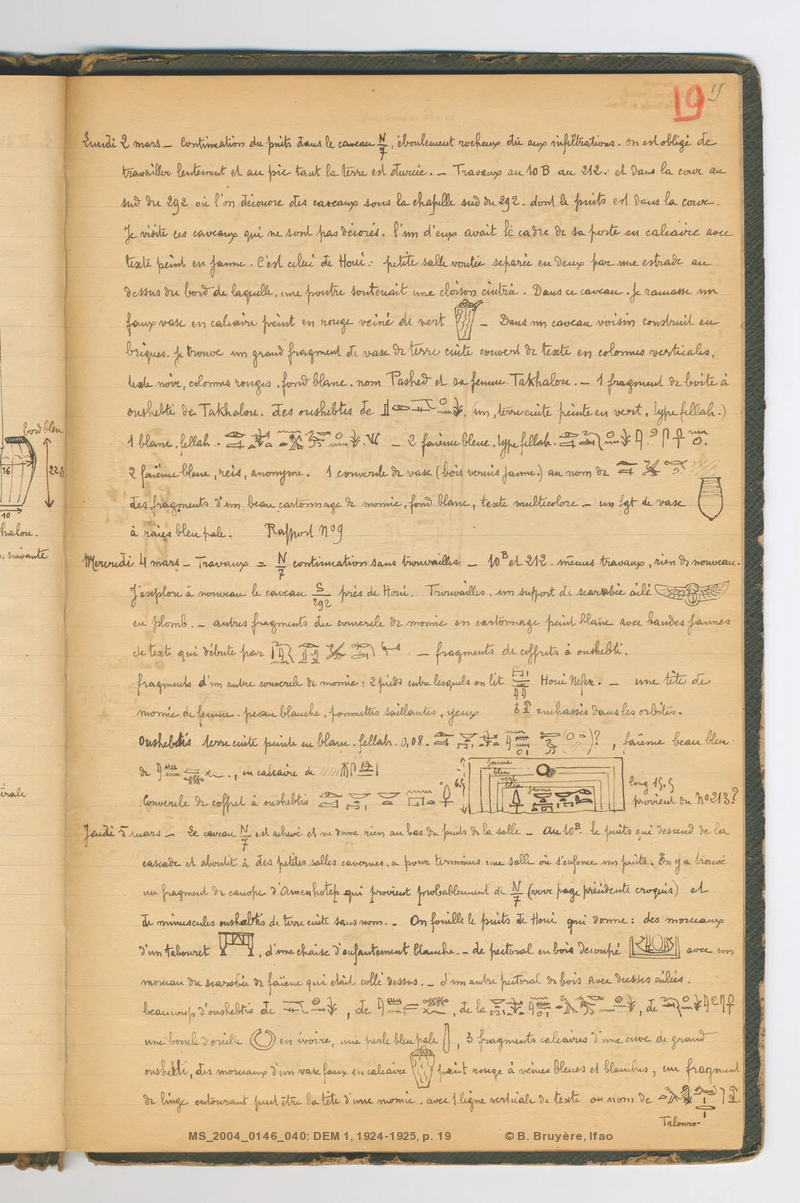 19
19
Lundi 2 mars – Continuation du puits dans le caveau N/7, éboulement rocheux dû aux infiltrations. on est obligé de
travailler lentement et au pic tant la terre est durcie. – Travaux au 10 B au 212. et dans la cour au
sud du 292 où l'on découvre des caveaux sous la chapelle sud du 292. dont le puits est dans la cour.
Je visite ces caveaux qui ne sont pas décorés. l'un d'eux avait le cadre de sa porte en calcaire avec
texte peint en jaune. C'est celui de Houi. petite salle voutée separée en deux par une estrade au
dessus du bord de laquelle, une poutre soutenait une cloison cintrée. Dans ce caveau. Je ramasse un
faux vase en calcaire peint en rouge veiné de vert – Dans un caveau voisin construit en
briques. Je trouve un grand fragment de vase de terre cuite couvert de texte en colonnes verticales,
texte noire, colonnes rouges, fond blanc. nom Pashed et sa femme Takhalou. – 1 fragment de boite à
oushebti de Takhalou. des oushebtis de un, terre cuite peinte en vert, type fellah.)
1 blanc, fellah. – 2 faïence bleue, type fellah.
2 faïence bleue, reis, anonyme. 1 couvercle de vase (bois vernis jaune.) au nom de
des fragments d'un beau cartonnage de momie, fond blanc, texte multicolore – un fgt de vase
à raies bleu pale. Rapport n°9
Mercredi 4 mars – Travaux = N/7 continuation sans trouvailles – 10B et 212. mêmes travaux, rien de nouveau.
J'explore à nouveau le caveau S/292 près de Houi. Trouvailles. un support de scarabée ailé
en plomb. – autres fragments du couvercle de momie en cartonnage peint blanc avec bandes jaunes
de texte qui débute par – fragments de coffrets à oushebti.
fragments d'un autre couvercle de momie : 2 pieds entre lesquels on lit Houi Nefer. – une tête de
momie de femme. peau blanche, pommettes saillantes, yeux enchassés dans les orbites.
Oushebtis terre cuite peinte en blanc. fellah. 0,08. ?, faïence beau bleu
de , en calcaire de
jaune
bleu
vert
bleu
jaune
long 15,5
Couvercle de coffret à oushebtis provient du N° 213?
Jeudi 5 mars – Le caveau N/7 est achevé et ne donne rien au bas du puits de la salle – Au 10B. le puits qui descend de la
cascade et aboutit à des petites salles cavernes. a pour terminus une salle où s'enfonce un puits. On y a trouvé
un fragment de canope d'Amenhotep qui provient probablement de N/7 (voir page précédente croquis) et
de minuscules oushebtis de terre cuite sans nom. – On fouille le puits de Houi qui donne : des morceaux
d'un tabouret , d'une chaise d'enfantement blanche. – de pectoral en bois découpé avec un
morceau du scarabée de faïence qui était collé dessus. – d'un autre pectoral de bois avec déesses ailées.
beaucoup d'oushebtis de , de , de la , de
une boucle d'oreille en ivoire, une perle bleu pale , 3 fragments calcaires d'une cuve de grand
oushebti, des morceaux d'un vase faux en calcaire peint rouge à veines bleues et blanches, un fragment
de linge entourant peut être la tête d'une momie. avec 1 ligne verticale de texte au nom de
bord bleu
16
10
halou.
suivante
érale
MS_2004_0146_040: DEM 1, 1924-1925, p. 19 © B. Bruyère, Ifao